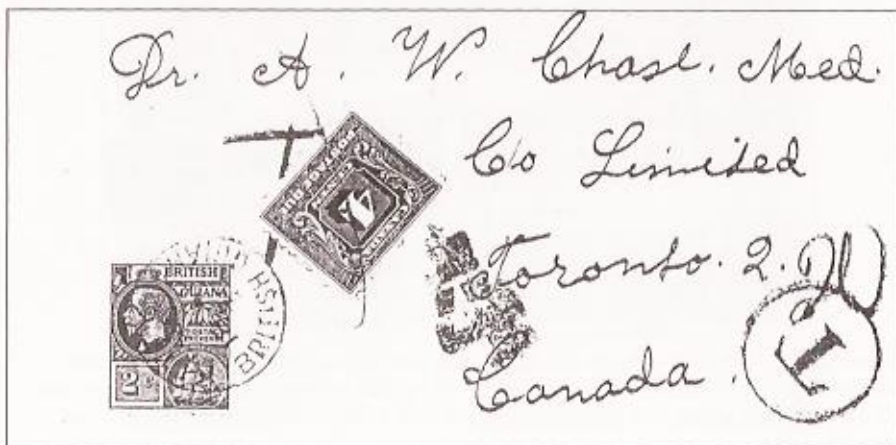 Dr. A. W. Chase. Med.
Co Limited
Toronto. 2.
Canada.
T
BRITISH
GUIANA
POSTAGE
2
POSTAGE DUE
4
BRITISH